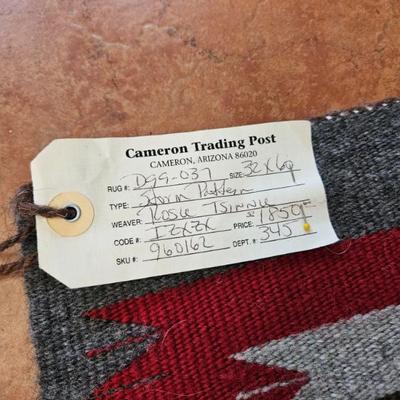 Cameron Trading Post
CAMERON, ARIZONA 86020
RUG #: D99-037 SIZE: 32X69
TYPE: Storm Pattern
WEAVER: Rosie Tsinnie
CODE #: IZXZX PRICE: 1850
SKU #: 960162 DEPT. #: 345